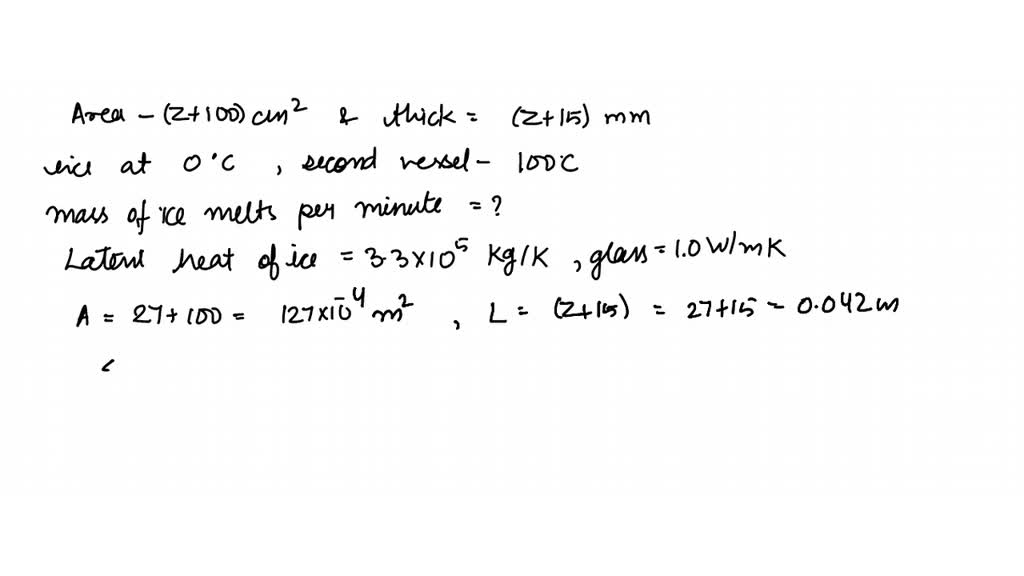 Area - (Z+100) cm² & thick = (Z+15) mm
ice at 0°C , second vessel - 100°C
mass of ice melts per minute = ?
Latent heat of ice = 3.3×10⁵ Kg/K , glass = 1.0 W/mK
A = 27+100 = 127×10⁻⁴ m² , L = (Z+15) = 27+15 - 0.042 m